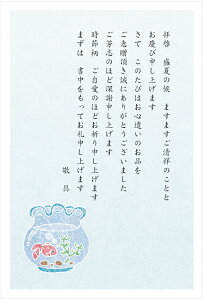 拝啓 盛夏の候 ますますご清祥のことと
お慶び申し上げます
さて このたびはお心遣いのお品を
ご恵贈頂き誠にありがとうございました
ご芳志のほど深謝申し上げます
時節柄 ご自愛のほどお祈り申し上げます
まずは 書中をもってお礼申し上げます
敬具